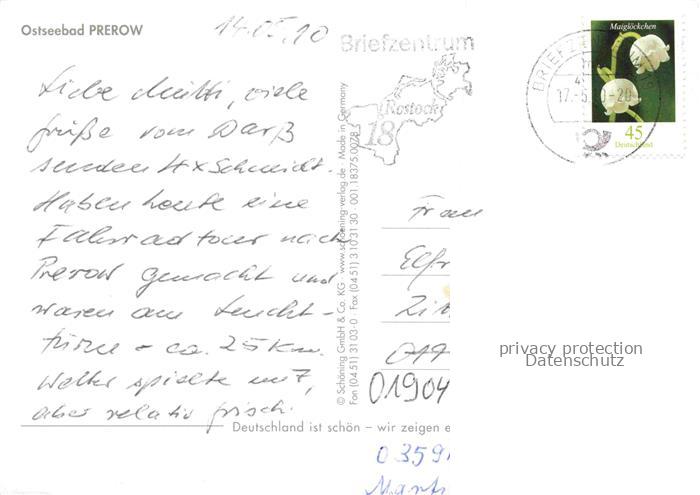 Ostseebad PREROW
14.05.10
Liebe Mutti, viele
Grüße vom Darß
senden 4 x Schmidt.
Haben heute eine
Fahrradtour nach
Prerow gemacht und
waren am Leucht-
turm - ca. 25 Km.
Wetter spielte mit,
aber relativ frisch.
© Schöning GmbH & Co. KG · www.schoening-verlag.de · Made in Germany
Fon (04 51) 31 03-0 · Fax (04 51) 3 10 31 30 · 001.18375.0078
Deutschland ist schön – wir zeigen e
Briefzentrum
Rostock
18
BRIEFZENTRUM
17.-5.10-20
Maiglöckchen
45
Deutschland
Frau
Elfr
019
01904
0359
privacy protection
Datenschutz